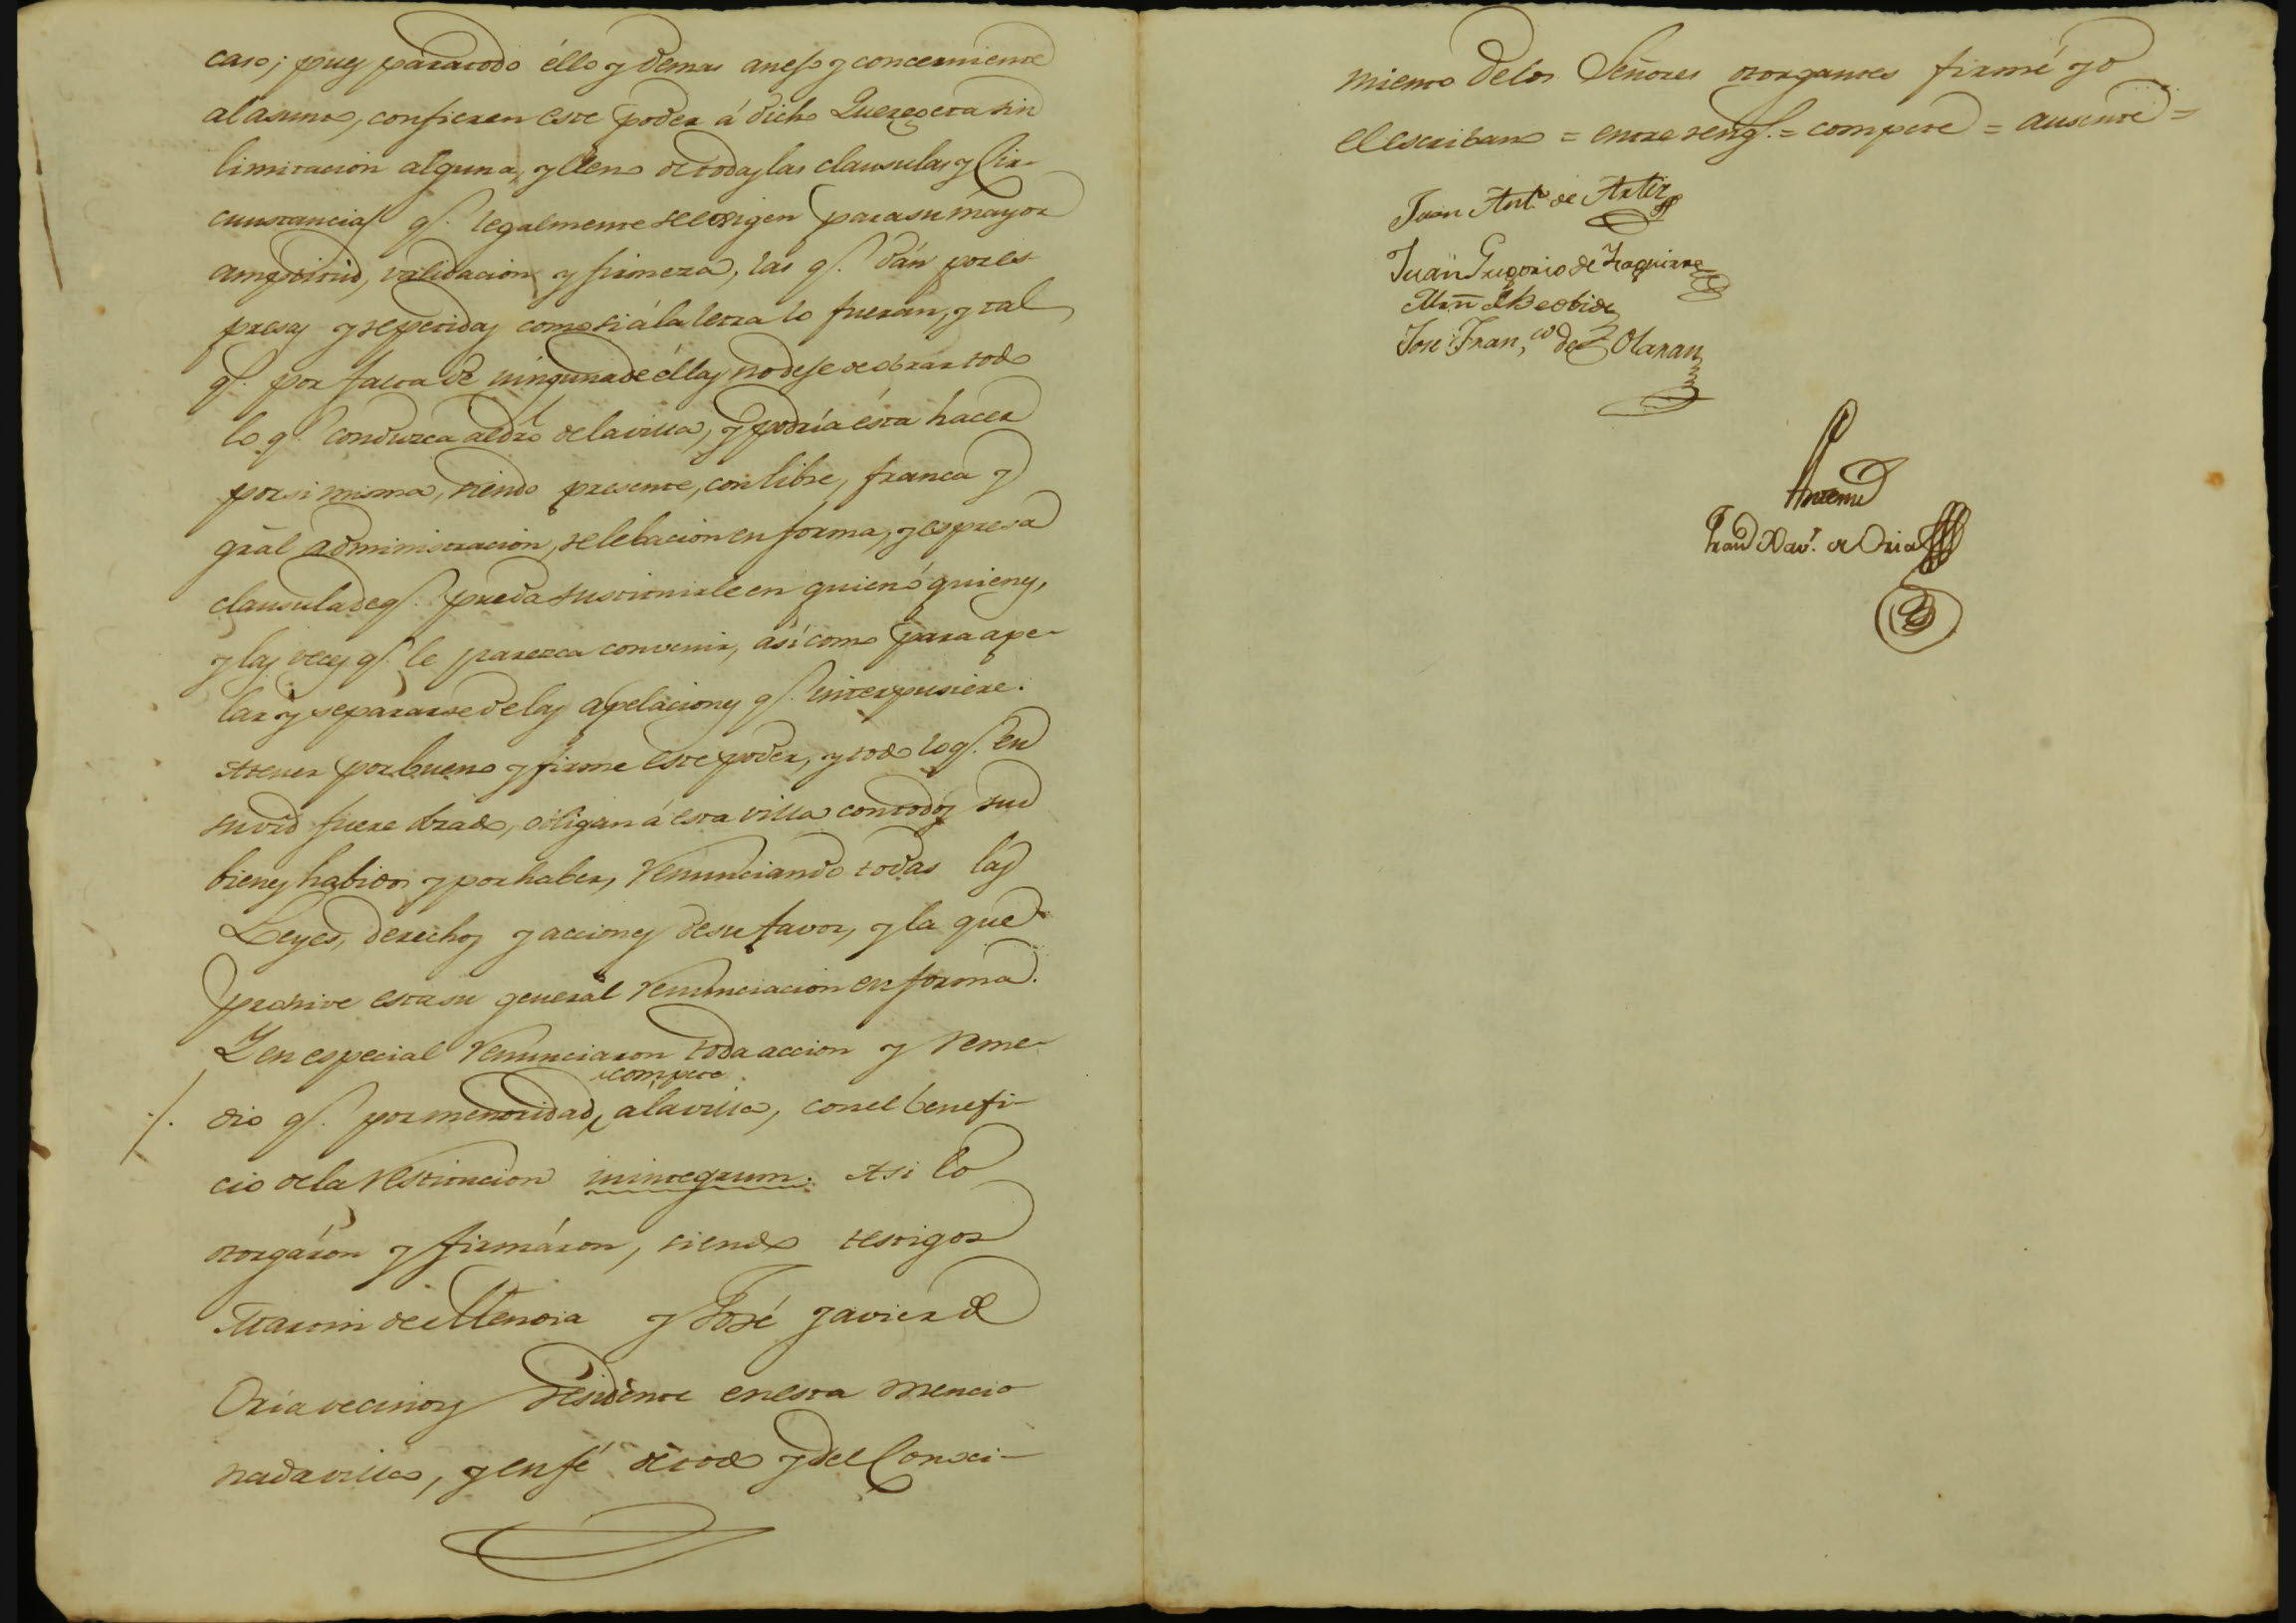 caso; pues para todo éllo y demas anejo y concerniente
al asunto, confieren este poder á dicho Querejeta sin
limitacion alguna, y lleno de todas las clausulas y Cir-
cunstancias qe. legalmente se exigen para su mayor
amplitud, validacion y firmeza, las qe. dán por es
presas y repetidas como si á la letra lo fueran, y tal
qe. por falta de ninguna de éllas no deje de obrar todo
lo qe. conduzca al dro de la villa, y podría ésta hacer
por si misma, siendo presente, con libre, franca y
gral administracion, relebacion en forma, y espresa
clausula de qe. pueda sustituirle en quien ó quienes,
y las veces qe. le parezca convenir, así como para ape-
lar y separarse de las apelaciones qe. interpusiere.
A tener por bueno y firme este poder, y todo lo qe. en
su vid fuere obrado, obligan á esta villa con todos sus
bienes habidos y por haber, renunciando todas las
Leyes, derechos y acciones de su favor, y la que
prohive esta su general renunciacion en forma.
Y en especial renunciaron toda accion y reme-
compete
dio qe. por menoridad, a la villa, con el benefi-
cio de la restitucion in integrum. Asi lo
otorgáron y firmáron, siendo testigos
Martin de Mendia y José Javier de
Oria vecinos y residente en esta mencio
nada villa, y en fé de todo y del Conoci-
miento de los Señores otorgantes firmé yo
el escribano = entre rengs. = compete = ausente =
Juan Anto. de Arteiz
Juan Gregorio de Yzaguirre
Mrn de Beobide
José Franco de Olaran
Ante mi
Franco Xavr. de Oria